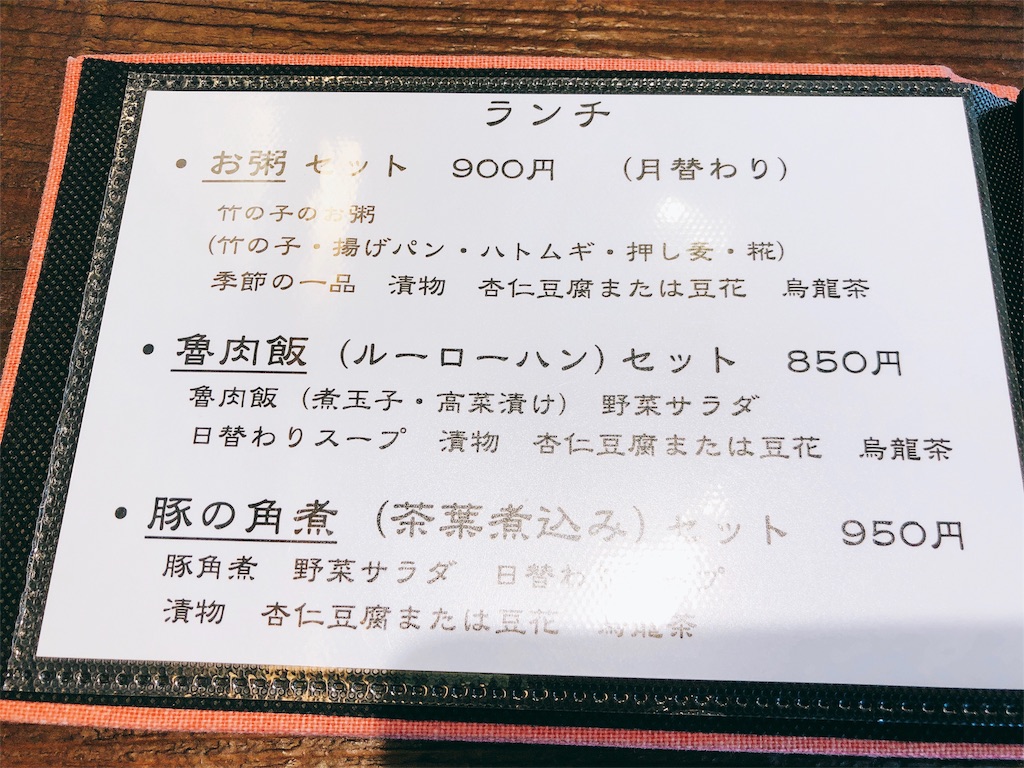 ランチ
• お粥 セット 900円 （月替わり）
竹の子のお粥
（竹の子・揚げパン・ハトムギ・押し麦・糀）
季節の一品 漬物 杏仁豆腐または豆花 烏龍茶
• 魯肉飯 （ルーローハン）セット 850円
魯肉飯 （煮玉子・高菜漬け） 野菜サラダ
日替わりスープ 漬物 杏仁豆腐または豆花 烏龍茶
• 豚の角煮 （茶葉煮込み） セット 950円
豚角煮 野菜サラダ 日替わりスープ
漬物 杏仁豆腐または豆花 烏龍茶